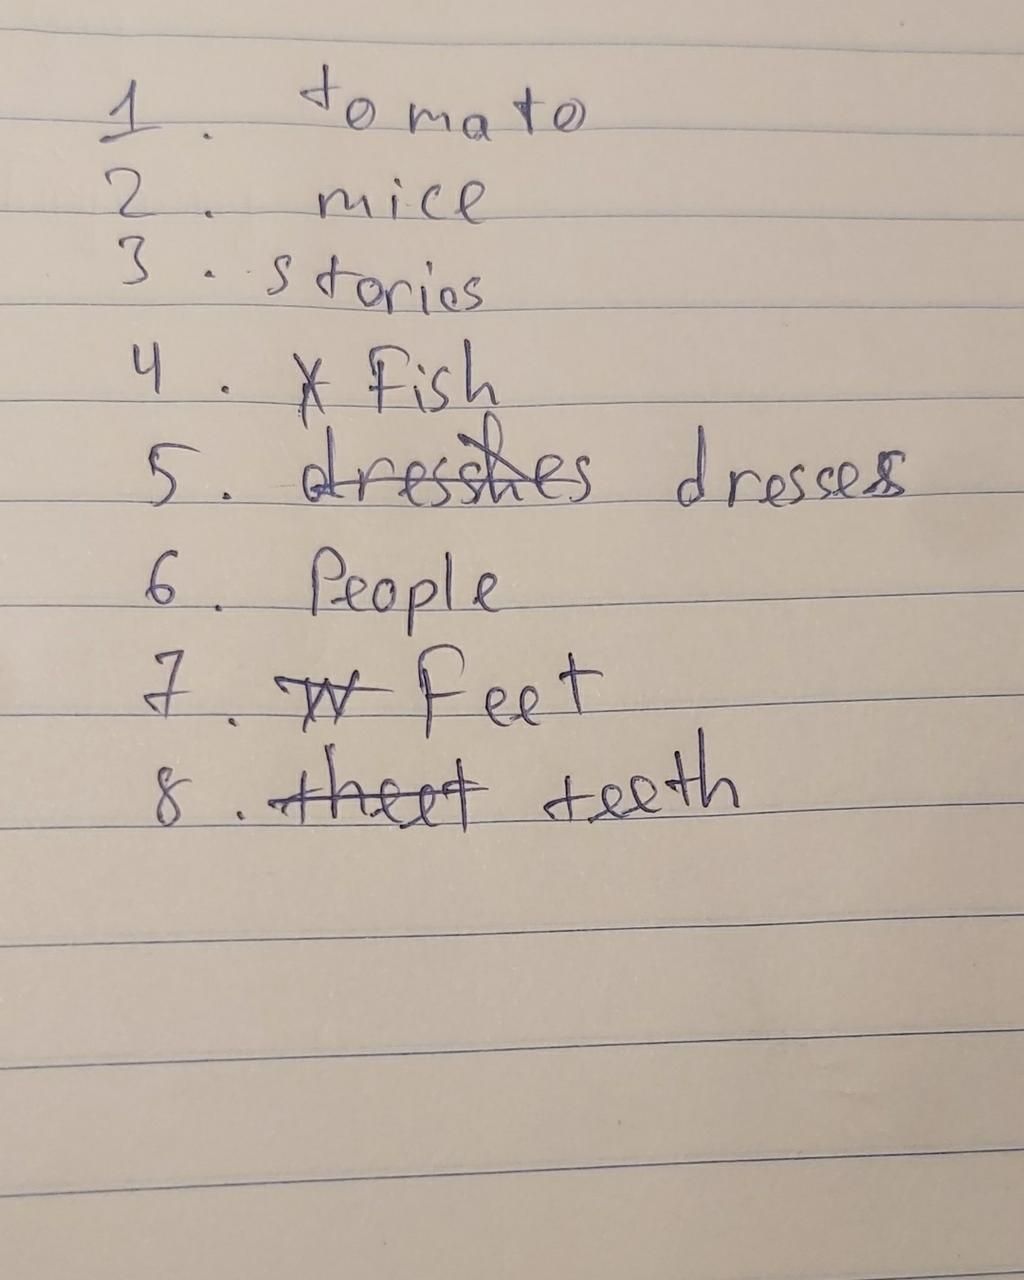 1. tomato
2. mice
3. stories
4. Fish
5. dresshes dresses
6. People
7. Feet
8. theet teeth